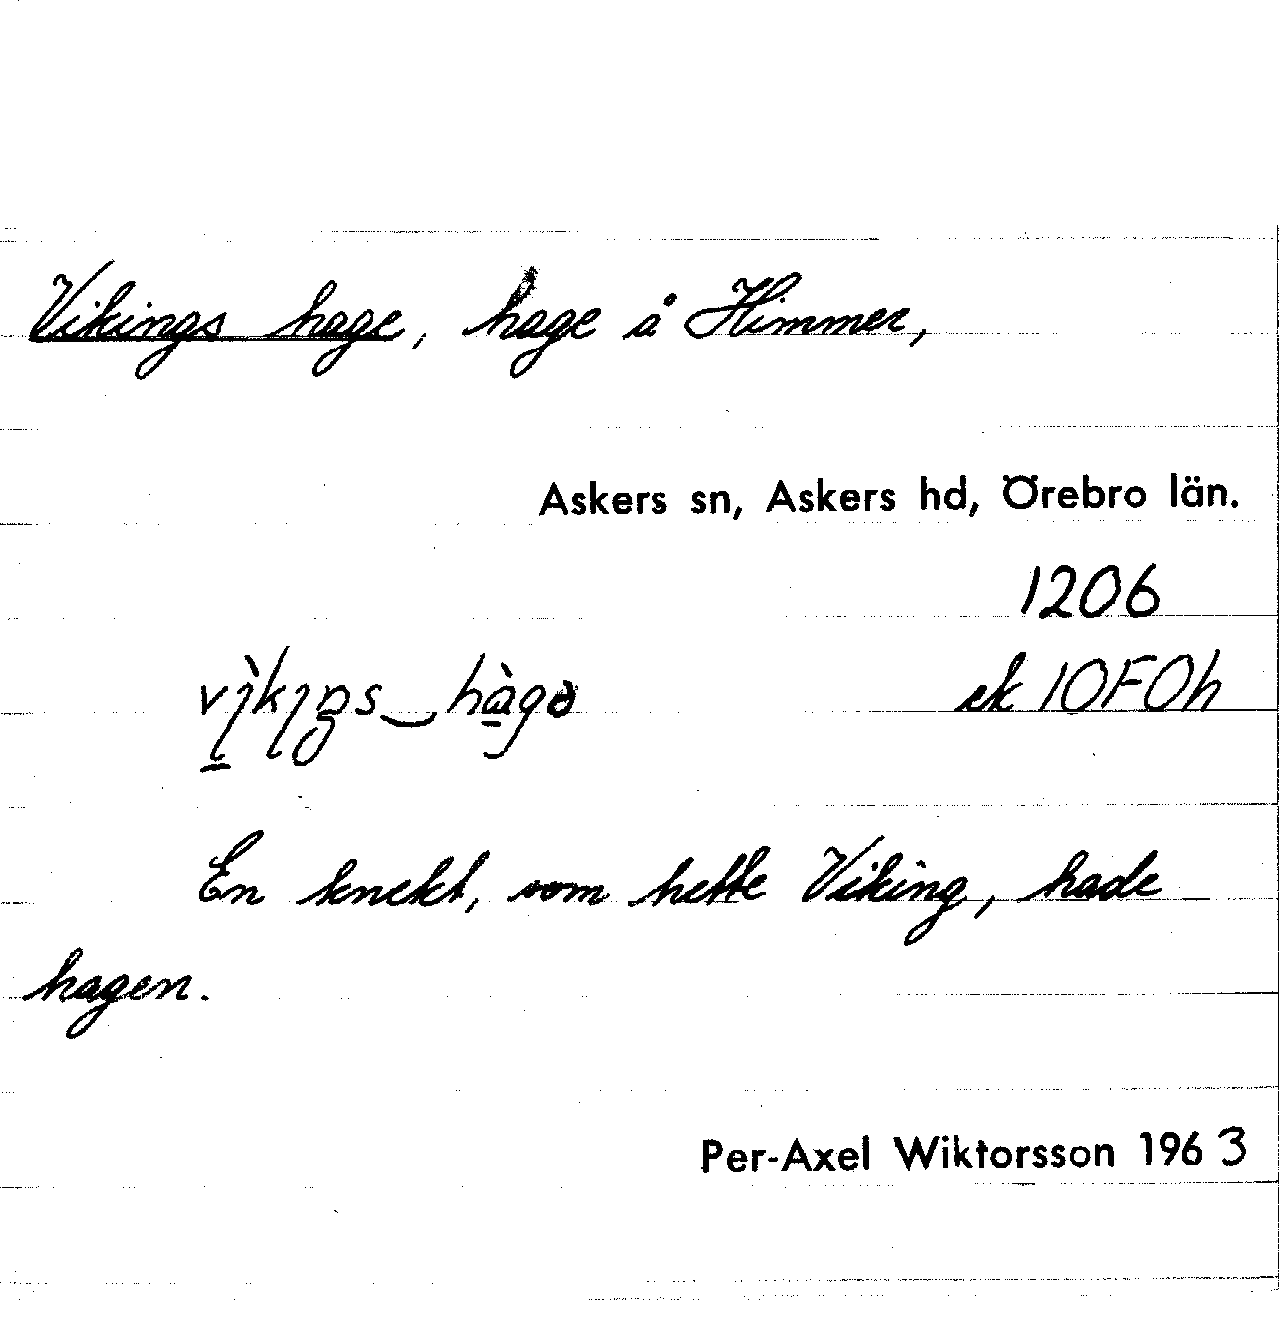 Vikings hage, hage å Himmer,
Askers sn, Askers hd, Örebro län.
1206
vìkiŋs‿hàgə ek 10F0h
En knekt, som hette Viking, hade
hagen.
Per-Axel Wiktorsson 1963